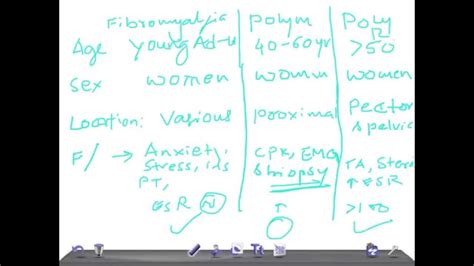 Fibromyalgia polym poly R
Age Young Ad-u 40-60yr >50
Sex women womm women
Location: Various proximal Pector spelvic
F/ → Anxiety, CPK, EMG
Stress, ins biopsy TA, Stero
PT, ↑ ESR
ESR N ↑ >100